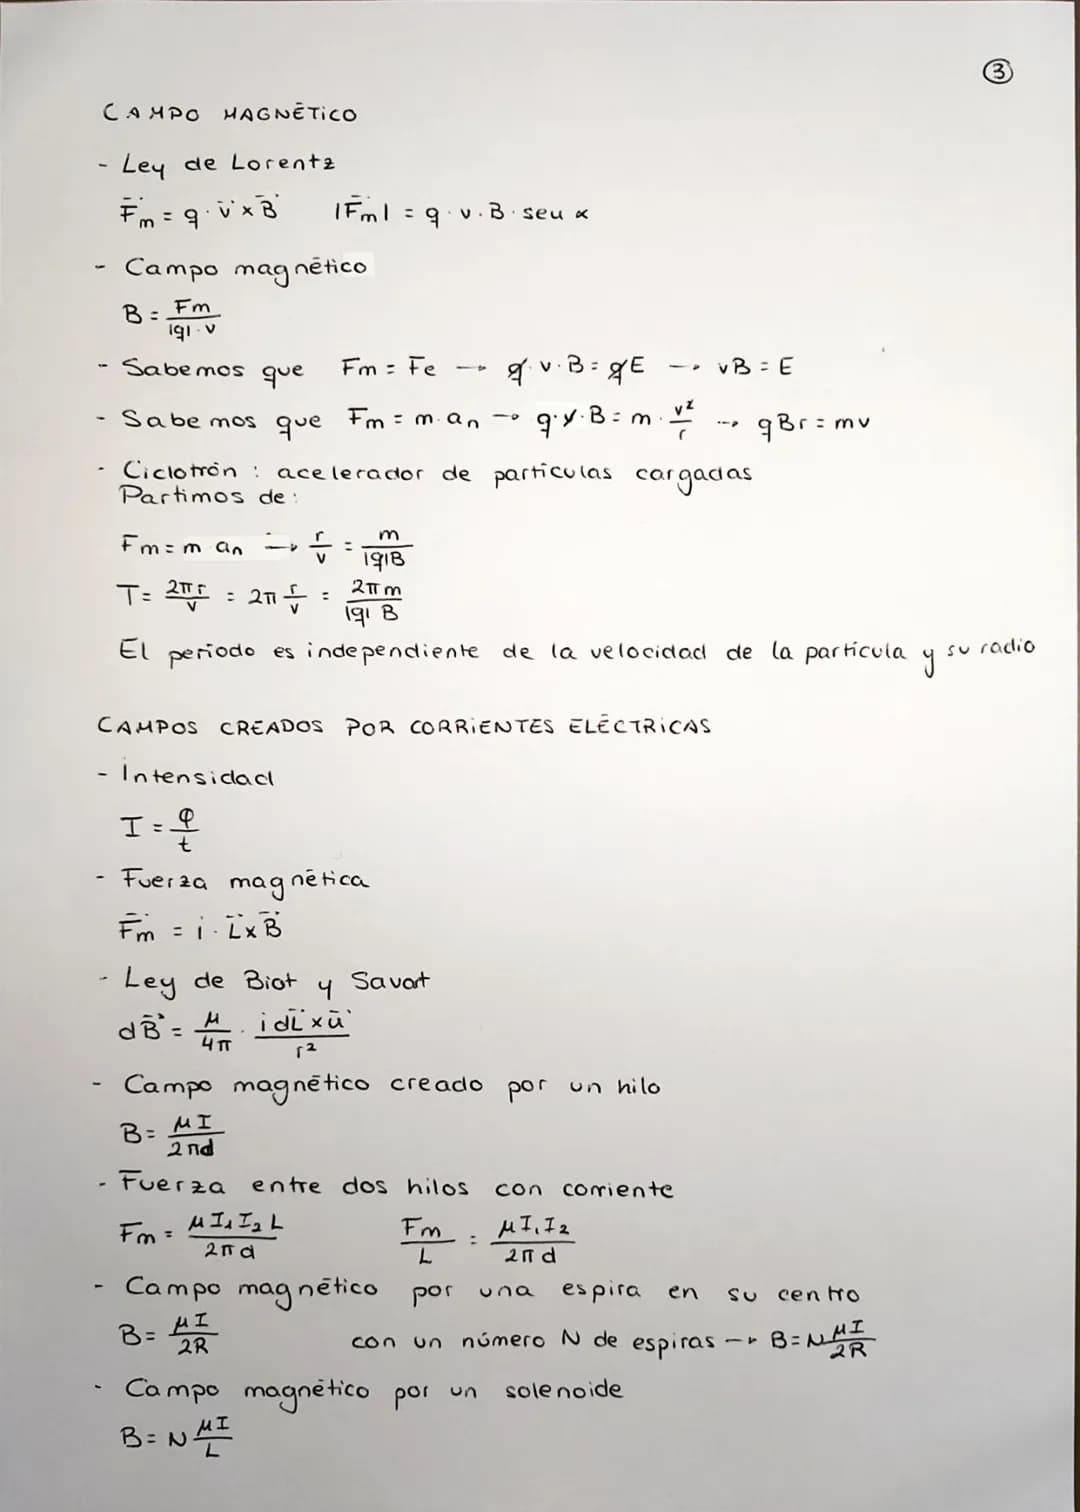 ③
CAMPO MAGNÉTICO
- Ley de Lorentz
F⃗m = q · v⃗ × B⃗    |F⃗m| = q · v · B · sen α
- Campo magnético
B = Fm / |q| · v
- Sabemos que Fm = Fe → q · v · B = qE → vB = E
- Sabemos que Fm = m · an → q · v · B = m · v² / r → qBr = mv
- Ciclotrón : acelerador de partículas cargadas
Partimos de :
Fm = m · an → r / v = m / |q|B
T = 2πr / v = 2π r / v = 2πm / |q| B
El período es independiente de la velocidad de la partícula y su radio
CAMPOS CREADOS POR CORRIENTES ELÉCTRICAS
- Intensidad
I = φ / t
- Fuerza magnética
F⃗m = i · L⃗ × B⃗
- Ley de Biot y Savart
dB⃗ = μ / 4π · i dL⃗ × u⃗ / r²
- Campo magnético creado por un hilo
B = μI / 2πd
- Fuerza entre dos hilos con corriente
Fm = μI₁I₂L / 2πd    Fm / L = μI₁I₂ / 2πd
- Campo magnético por una espira en su centro
B = μI / 2R    con un número N de espiras → B = N μI / 2R
- Campo magnético por un solenoide
B = N μI / L